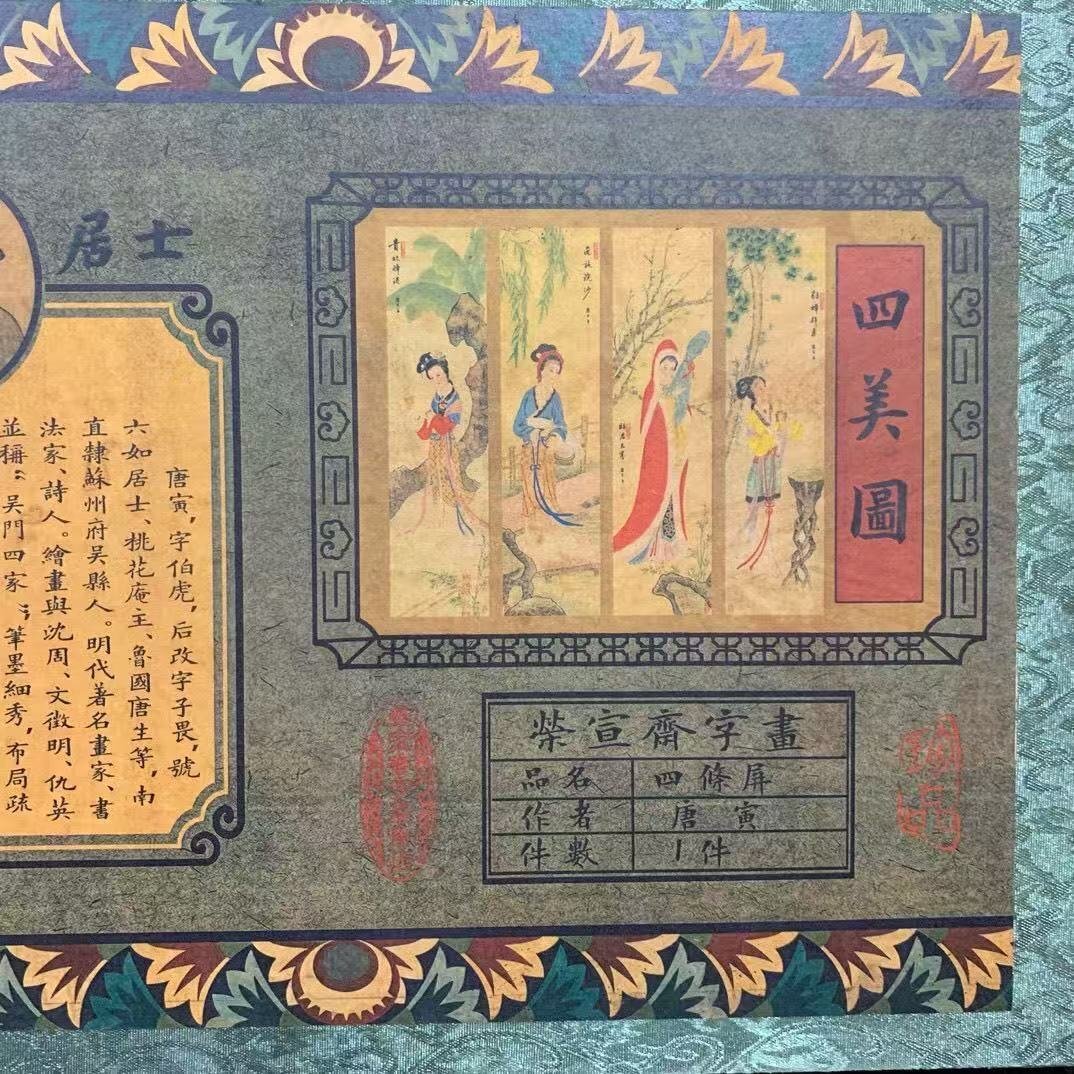 居士
四美圖
唐寅，字伯虎，后改字子畏，號
六如居士、桃花庵主、魯國唐生等，南
直隸蘇州府吳縣人。明代著名畫家、書
法家、詩人。繪畫與沈周、文徵明、仇英
並稱“吳門四家”；筆墨細秀，布局疏
榮宣齋字畫
品名 四條屏
作者 唐寅
件數 1件